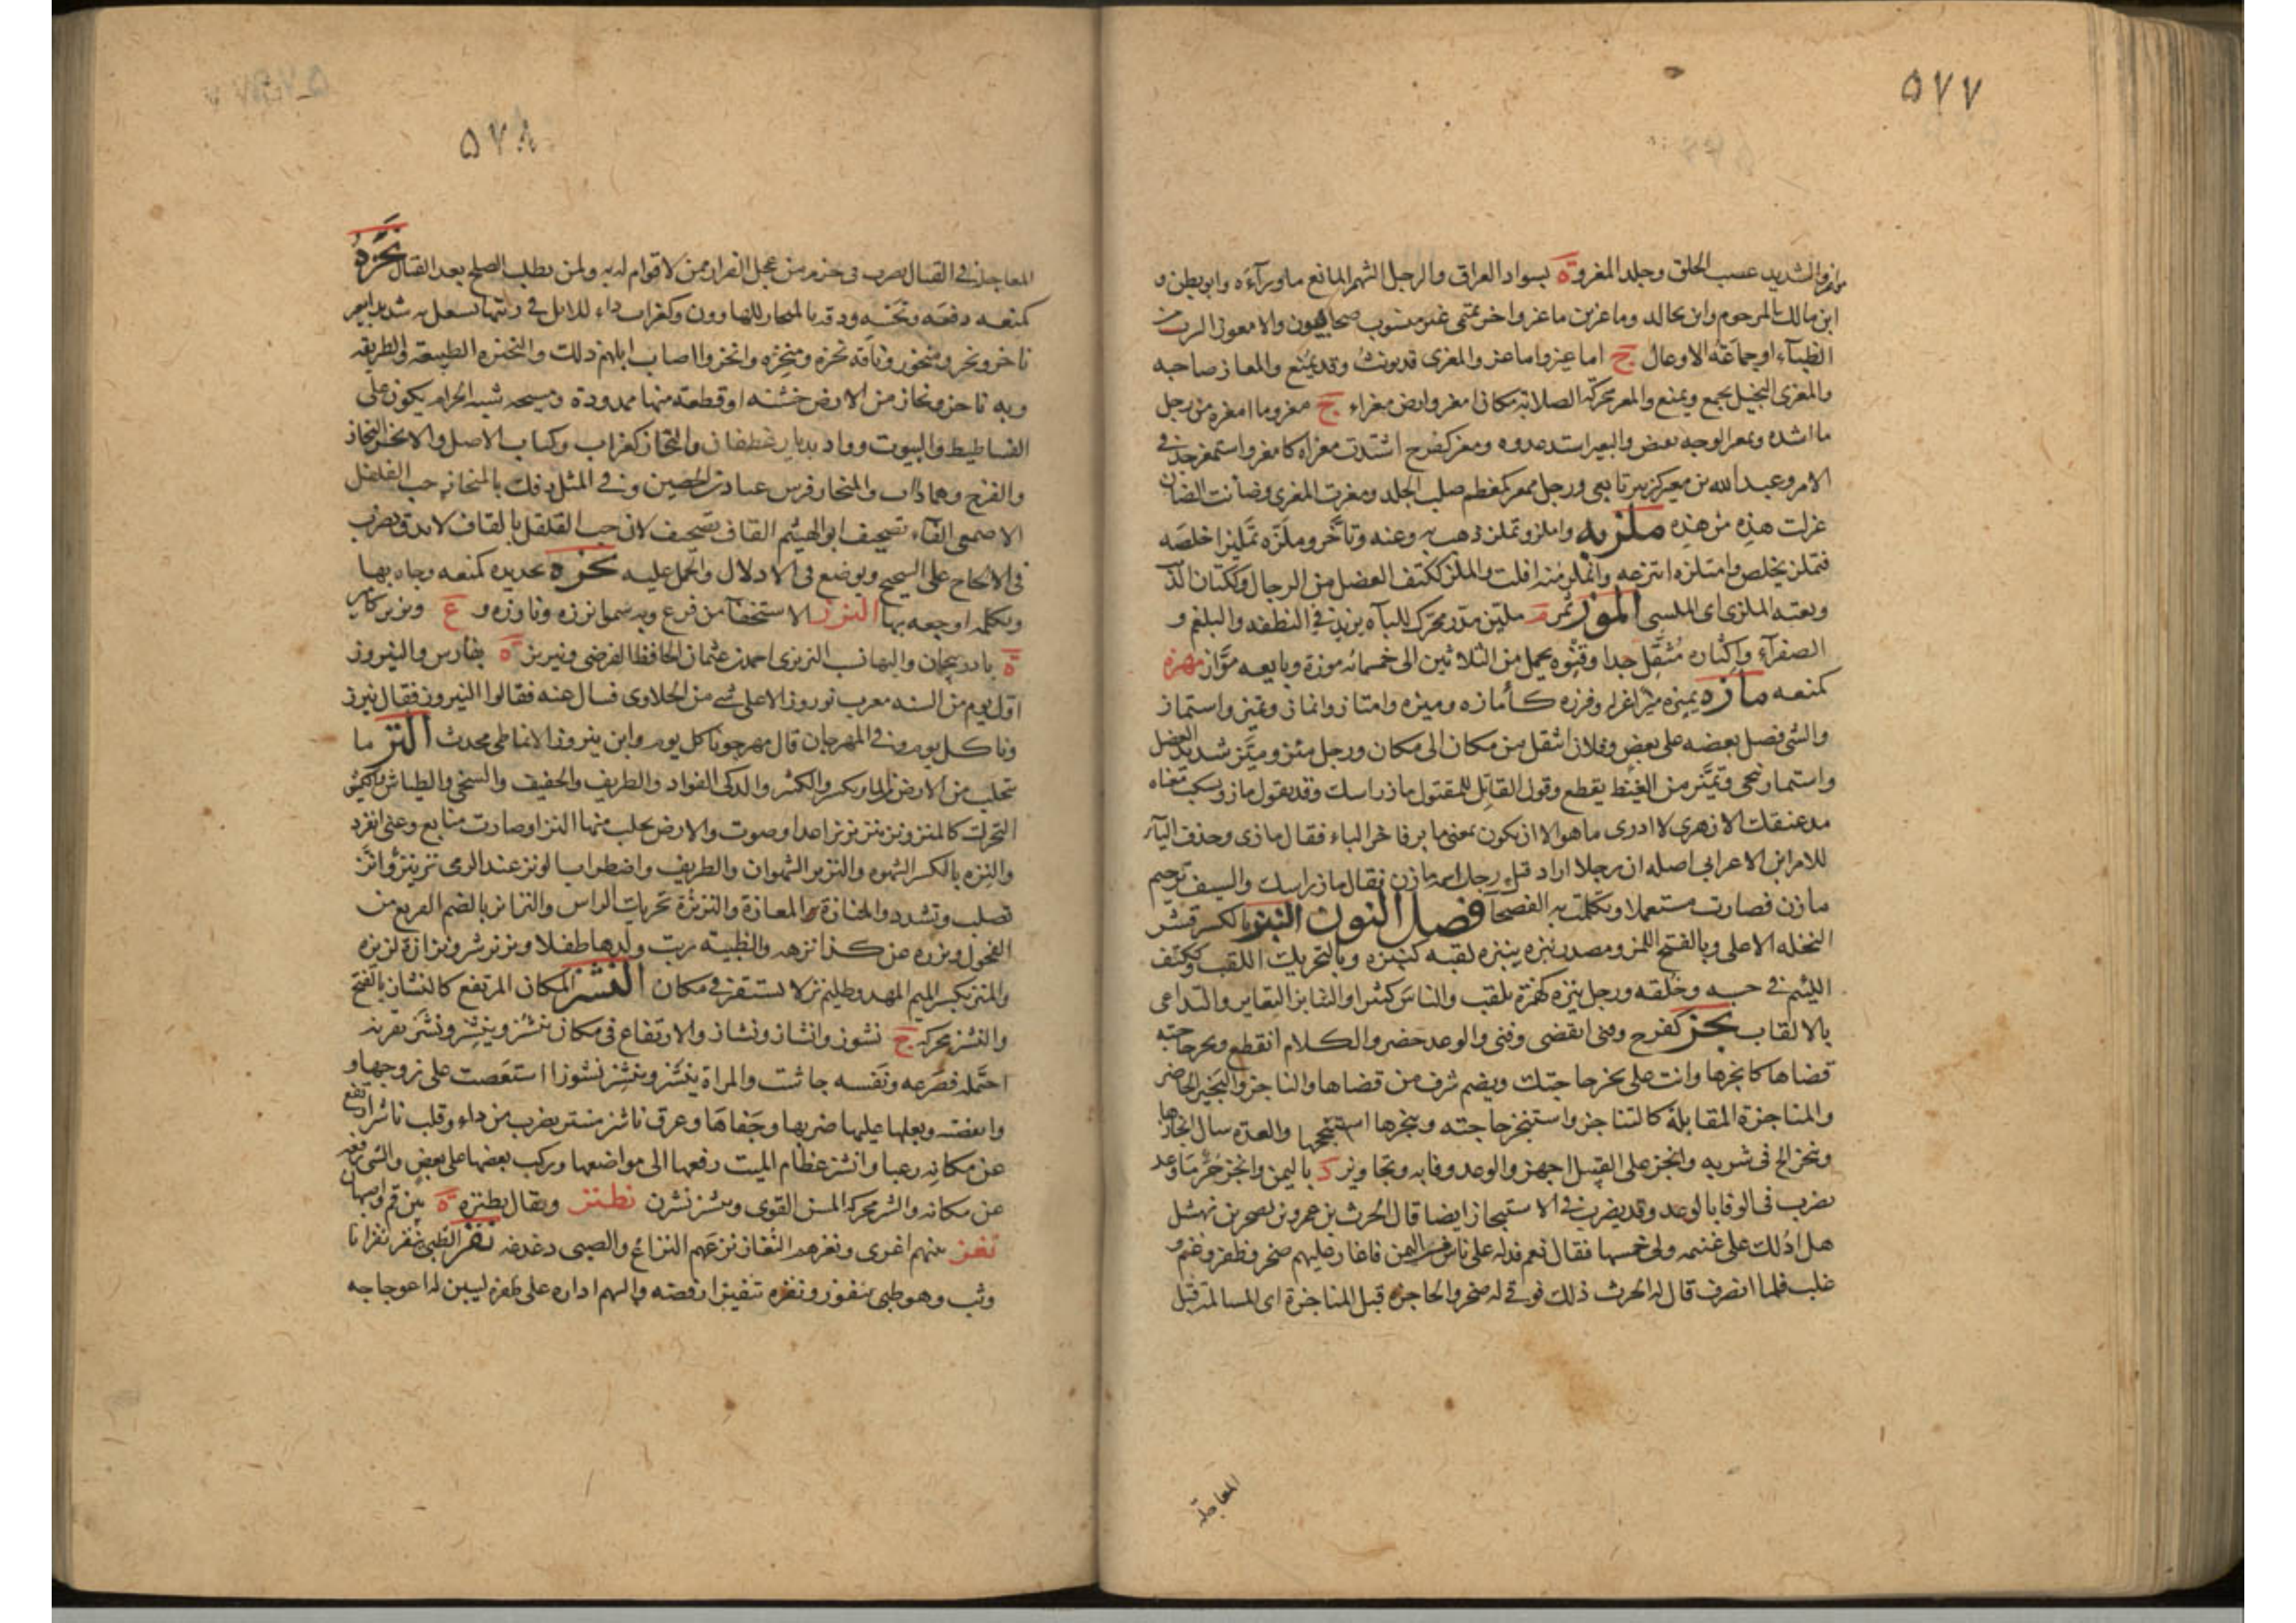 ٥٧٧
الشديد عصب الخلق وجلد المغروة بسواد العراق والرجل الشهم المانع ماوراءه وابو بطن و
ابن مالك المرحوم وابن مجالد وماعز بن ماعز واخر تميمى غير منسوب صحابيون والامعوز السرب من
الظباء او جماعة الاوعال ج اماعيز واماعز والمعزى قد يونث وقد يمنع والمعاز صاحبه
والمعزى البخيل يجمع ويمنع والمعز محركة الصلابة مكان امعز وارض معزاء ج معز وما امعزه من رجل
ما اشده وتمعز الوجه تقبض والبعير اشتد عدوه ومعز كفرح اشتدت معزاه كامعز واستمعز جد فى
الامر وعبد الله بن معيز كزبير تابعى ورجل ممعز كمعظم صلب الجلد ومعزت المعزى وضأنت الضان
عزلت هذه من هذه ملز به واملز وتملز ذهب به وعنه وتأخر وملزه تمليزا خلصه
فتملز تخلص وامتلزه انتزعه وانملز منه افلت والملز ككتف العضل من الرجال وككتان الذئب
وبعته الملزى اى الملسى الموز ثمر م ملين مدر محرك للباه يزيد فى النطفه والبلغم و
الصفرآء واكثاره مثقل جدا وقنوه يحمل من الثلاثين الى خمسمائه موزة وبايعه مواز مهزه
كمنعه مازه يميزه ميزا عزله وفرزه كأمازه وميزه وامتاز وانماز وتميز واستماز
والشى فصل بعضه على بعض وفلان انتقل من مكان الى مكان ورجل ميز وميز شديد العضل
واستماز تنحى وتميز من الغيظ يقطع وقول القائل للمقتول ماز راسك وقد يقول ماز ويسكت معناه
مد عنقك الازهرى لا ادرى ما هو الا ان يكون بمعنى مايز فاخر الياء فقال مازى وحذف الياء
للامر ابن الاعرابى اصله ان رجلا اراد قتل رجل اسمه مازن فقال ماز راسك والسيف ترخيم
مازن فصارت مستعملا وتكلمت به الفصحآ فصل النون النبز بالكسر قشر
النخله الاعلى وبالفتح اللمز ومصدر نبزه ينبزه لقبه كنبزه وبالتحريك اللقب وككتف
اللئيم فى حسبه وخلقه ورجل نبزه كهمزة يلقب والناس كثيرا والتنابز التعاير والتداعى
بالالقاب نجز كفرح وفنى انقضى وفنى والوعد حضر والكلام انقطع ونجز حاجته
قضاها كانجزها وانت على نجز حاجتك ويضم شرف من قضاها والناجز والنجيز الحاضر
والمناجزة المقابلة كالتناجز واستنجز حاجته وتنجزها استنجحها والعدة سال انجازها
وتنجز الح فى شربه وانجز على القتيل اجهز والوعد وفا به ونجاويز د باليمن وانجز حر ما وعد
يضرب فى الوفا بالوعد وقد يضرب فى الاستنجاز ايضا قال الحرث بن عمرو بن لصخر بن نهشل
هل ادلك على غنيمه ولى خمسها فقال نعم فدله على ناس من اليمن فاغار عليهم صخر وظفر وغنم و
غلب فلما انصرف قال له الحرث ذلك فوفى له صخر والحاجزه قبل المناجزة اى المسالمة قبل
المعاجلة
٥٧٨
المعاجلة فى القتال يضرب فى حزم من عجل الفرار ممن لا قوام له به ولمن يطلب الصلح بعد القتال نحزه
كمنعه دفعه ونخسه ودقه بالمنحاز للهاوون وكغراب داء للابل فى رئتها تسعل به شديدا بعير
ناحز ونحز ومنحوز وناقة نحزة ومنحزة وانحزوا اصاب ابلهم ذلك والنحيزه الطبيعة والطريقه
وبه ناحز ونحاز من الارض خشنه او قطعة منها ممدودة ونسيجه شبه الحزام يكون على
الفساطيط والبيوت وواد بديار غطفان والنحاز كغراب وكتاب الاصل والانحزان النحاز
والقرح وهما داآن والمنحاز فرس عباد بن الحصين وفى المثل دقك بالمنحاز حب الفلفل
الاصمعى الفآء تصحيف ابو الهيثم القاف تصحيف لان حب القلقل بالقاف لا يدق يضرب
فى الالحاح على الشحيح ويوضع فى الادلال والحمل عليه نخزه بحديده كمنعه وجاه بها
وبكلمه اوجعه بها النرز الاستخفآ من فزع وبه سموا نرزه ونارزه و ع ونريز كامير
ة باذربيجان واليها نسب النريزى احمد بن عثمان الحافظ الفرضى ونيريز ة بفارس والنيروز
اول يوم من السنه معرب نوروز الاعلى شى من الحلاوى فسال عنه فقالوا النيروز فقال نيرز
ونا كل يوم وفى المهرجان قال مهرجونا كل يوم وابن نيروز الانماطى محدث النز ما
تحلب من الارض من الماء ويكسر والكثير والذكى الفواد والظريف والخفيف والسخى والطياش والكثير
التحرك كالمنز ونز ينز نزيزا عدا وصوت والارض تحلب منها النز او صارت منابع وعنى انفرد
والنزه بالكسر الشهوه والنزيز الشهوان والظريف واضطراب الوتر عند الرمى نز ينز وانز
تصلب وتشدد والمنازة والمعازة والنزنزة تحريك الراس والنزانز بالضم القريع من
الفحول ونززه عن كذا نزهه والظبيه ربت ولدها طفلا ونز نزيز شر ونزازة لزيزه
والمنز بكسر الميم المهد وظليم نز لا يستقر فى مكان النشز المكان المرتفع كالنشاز بالفتح
والنشز محركه ج نشوز وانشاز ونشاز والارتفاع فى مكان ينشز وينشز ونشز بقرنه
احتمله فصرعه ونفسه جاشت والمراة ينشز وينشز نشوزا استعصت على زوجها و
وابغضته وبعلها عليها ضربها وجفاها وعرق ناشز منتبر يضرب من داء وقلب ناشز ارتفع
عن مكانه رعبا وانشز عظام الميت رفعها الى مواضعها وركب بعضها على بعض والشى رفعه
عن مكانه والنشز محركه المسن القوى ونشز نشزن نطنز ويقال نطنزه ة بين قم واصبهان
نغز بينهم اغرى ونغزهم النغاز نزعهم النزاغ والصبى دغدغه نفز الظبى ينفز نفزانا
وثب وهو ظبى نفوز ونفزه تنفيزا رقصه والسهم اداره على ظفره ليبين له اعوجاجه